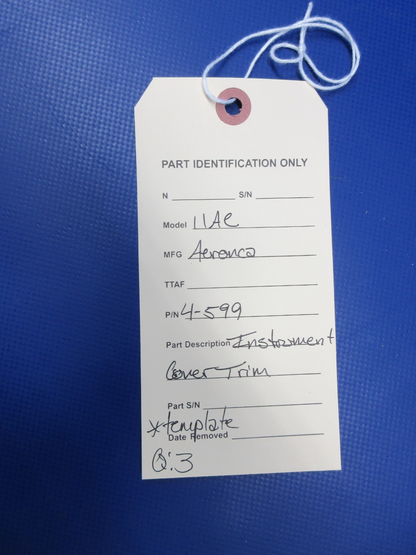 PART IDENTIFICATION ONLY
N S/N
Model 11AC
MFG Aeronca
TTAF
P/N 4-599
Part Description Instrument
Cover Trim
Part S/N
*template
Date Removed
Q: 3